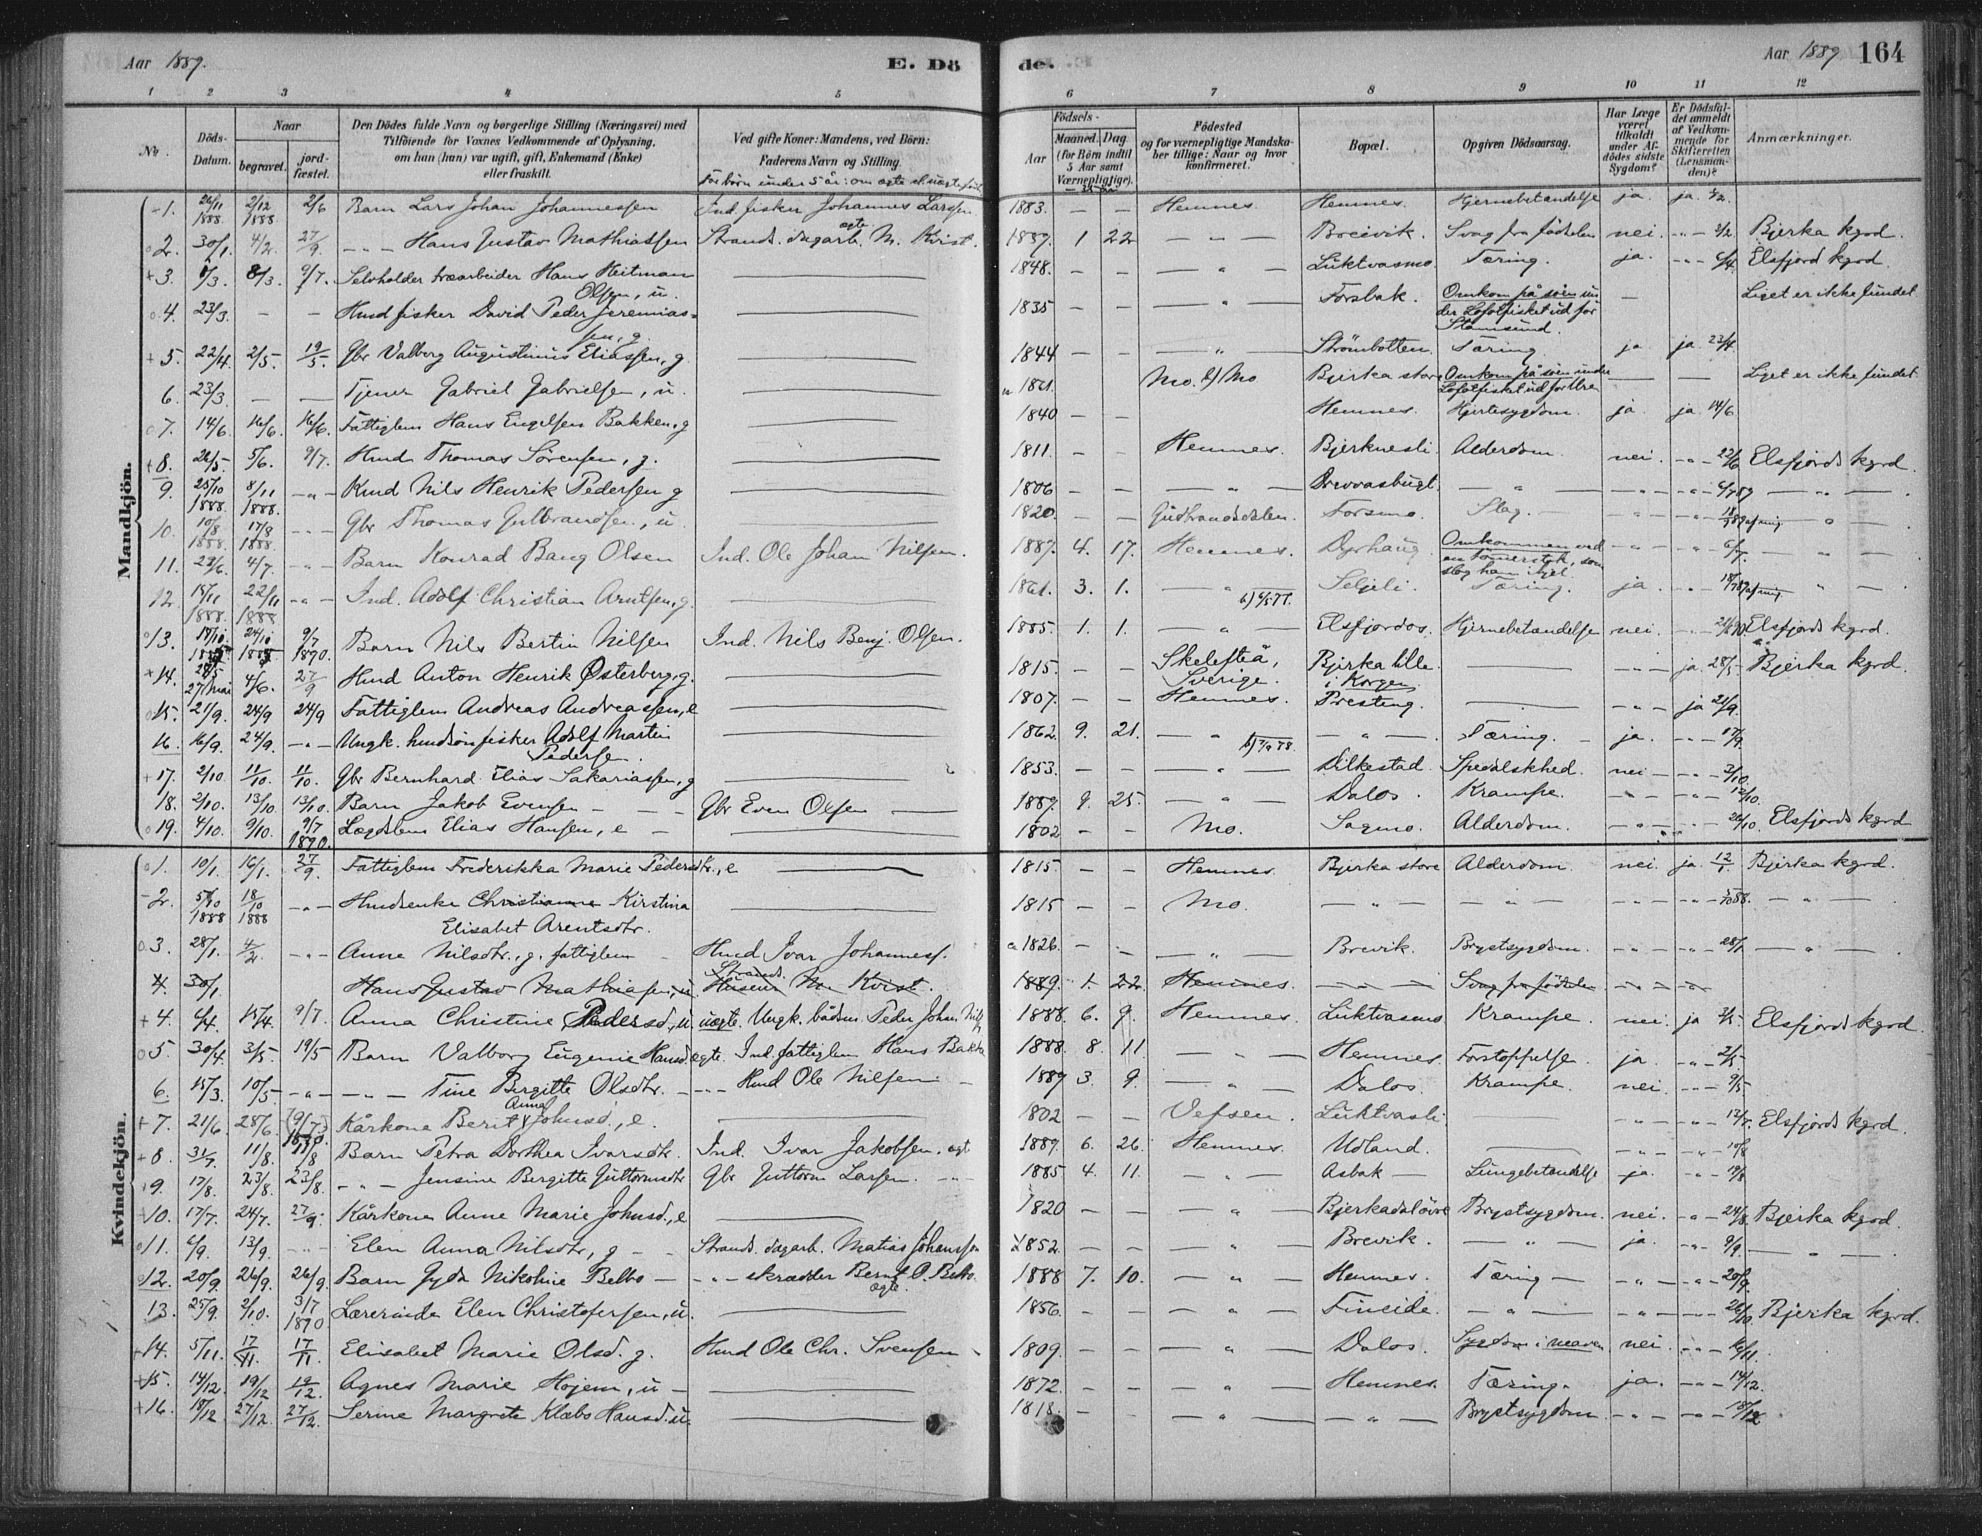 Aar 1889.
E. Dö
de.
Aar 1889
164
1 2 3 4 5
6 7 8 9 10 11 12
No.
Döds-Datum.
Naar
begravet.
jord-fæstet.
Den Dödes fulde Navn og borgerlige Stilling (Næringsvei) med
Tilföiende for Voxnes Vedkommende af Oplysning,
om han (hun) var ugift, gift, Enkemand (Enke)
eller fraskilt.
Ved gifte Koner: Mandens, ved Börn:
Faderens Navn og Stilling.
for börn under 5 år: om ægte el. uægte född
Födsels-
Aar
Maaned. Dag.
(for Börn indtil
5 Aar samt
Værnepligtige).
Födested
og for værnepligtige Mandska-
ber tillige: Naar og hvor
konfirmeret.
Bopæl.
Opgiven Dödsaarsag.
Har Læge
været
tilkaldt
under Af-
dödes sidste
Sygdom?
Er Dödsfal-
det anmeldt
af Vedkom-
mende for
Skifteretten
(Lensman-
den)?
Anmærkninger.
Mandkjön.
1. 26/11 1888 2/12 1888 2/6 Barn Lars Johan Johannessen Ind. fisker Johannes Larssen 1883. – – Hemnes. Hemnes. Hjernebetændelse ja. ja.
2. 30/1 4/2. 27/9 – „ – Hans Gustav Mathiassen Strands. dagarb. M. Kvist. ægte 1889. 1 22 – „ – Breivik. Svag fra födselen nei. Bjerka kgrd.
3. 8/3. 9/7. Selvholder træarbeider Hans Heitman Olsen, u. 1848. – – – „ – Luktvasmo. Tæring. ja. Elsfjord kgrd.
4. 23/3. – – Husd fisker David Peder Jeremias-
sen, g 1835 – – – „ – Forsbak. Omkom på söen un-
der Lofotfisket ud for
Stamsund. – Liget er ikke fundet.
5. 22/4. 2/5. 19/5. Gbr Valborg Augustinus Eliassen, g 1844 – – – „ – Strömbotten. Tæring. ja ja 23/4.
6. 23/3. – – Tjener Gabriel Gabrielsen, u. 1861. Mo. b) Mo Bjerka store Omkom på söen under
Lofotfisket ud for Ure – – Liget er ikke fundet
7. 14/6. 16/6. 16/6. Fattiglem Hans Engelsen Bakken, g 1840 – – Hemnes. Hjertesygdom. ja. ja 14/6.
8. 26/5. 5/6. 9/7. Husd Thomas Sörensen, g. 1811. – – Hemnes. Bjerknesli Alderdom. nei. Elsfjords kgrd.
9. 25/10 1888. 8/11 1888. – „ – Husd Nils Henrik Pedersen g 1806 – – – „ – – „ – – „ –
10. 10/8 1888. 17/8 1888. – „ – Gbr Thomas Gulbrandsen, u. 1820. – – Gudbrandsdalen. Forsmo. Slag. – „ –
11. 28/6. 4/7. – „ – Barn Konrad Bang Olsen Ind. Ole Johan Nilsen. 1887. 4. 17. Hemnes. Dyrhaug Omkommen ved
en tömmerstok, som
slog ham ihjel. – „ –
12. 15/11 1888. 22/11 1888 – „ – Ind. Adolf Christian Arntsen, g. 1861. 3. 1. – „ – Seljeli. Tæring. ja. – „ –
13. 24/10 9/7 1890. Barn Nils Bertin Nilsen Ind. Nils Benj. Olsen. 1885. 1. 1. – „ – Elsfjordos. Hjernebetændelse nei. Elsfjords kgrd.
14. 27 mai 4/6. 27/9 Husd Anton Henrik Østerberg, g. 1815. – – Skelefteå,
Sverige. Bjerka lille
i Korgen. – ja 28/5. Bjerka kgrd.
15. 21/9. 24/9 24/9 Fattiglem Andreas Andreassen, e 1807. – – Hemnes. Presteng. – ja 21/9.
16. 16/9. 24/9. – „ – Ungk. husdsön fisker Adolf Martin
Pedersen. 1862. 9. 21. – „ – – „ – Tæring. ja. 17/9.
17. 2/10. 11/10. 11/10. Gbr Bernhard Elias Sakariassen, g 1853. – – – „ – Dilkestad. Spedalskhed. nei 3/10.
18. 2/10. 13/10 13/10. Barn Jakob Evensen Gbr Even Olsen 1889. 9. 25. – „ – Dalos. Krampe. 12/10.
19. 4/10. 9/10. 9/7 1890. Lægdslem Elias Hansen, e 1802 – – Mo. Sagmo. Alderdom. 26/10. Elsfjords kgrd
Kvindekjön.
1. 10/1. 16/1. 27/9. Fattiglem Frederikka Marie Pedersdtr., e 1815. – – Hemnes. Bjerka store Alderdom nei. ja 12/1. Bjerka kgrd.
2. 5/10 1888 18/10 1888 – „ – Husdsenke Christianna Kirstina
Elisabet Arentsdtr. 1815 – – Mo. – „ – – „ – – „ –
3. 28/1. 4/2. – „ – Anne Nilsdtr., g. fattiglem Husd Ivar Johannes. 1826. – – – „ – Brevik. Brystsygdom. 28/1. – „ –
4. 30/1. Hans Gustav Mathiasen, u. Strands. Husem M. Kvist. 1889. 1. 22. Hemnes. – „ – Svag fra födselen
4. 4/4. 15/4. 9/7. Anna Christine Pedersd., u. uægte. Ungk. bådsm. Peder Johan Nils 1888. 6. 9. Hemnes. Luktvasmo Krampe. nei. ja Elsfjords kgrd.
5. 30/4. 3/5. 19/5 Barn Valborg Eugenie Hansd. ægte. Ind. fattiglem Hans Bakke 1888. 8. 11 – „ – Hemnes. Forstoppelse ja.
6. 15/3. 10/5 – „ – – „ – Tine Birgitte Olsdtr. – „ – Husd Ole Nilsen 1889 3. 9. – „ – Dalos. Krampe. nei. 9/5
7. 21/6. 28/6. (9/7) 1890. Kårkone Berit Anna Johnsd., e. 1802 – – Vefsen. Luktvasli – 12/7. Elsfjords kgrd.
8. 31/7. 11/8. 11/8 Barn Petra Dorthea Ivarsdtr. Ind. Ivar Jakobsen. ægt 1889. 6. 26. Hemnes. Udland. – 10/8
9. 17/8. 23/8. 23/8. – „ – Jensine Bergitte Guttormsdtr Gbr Guttorm Larsen. – „ – 1885 4. 11. – „ – Asbak Lungebetændelse ja. 19/8
10. 17/7. 24/7. 27/9. Kårkone Anne Marie Johnsd., e 1820 – – – „ – Bjerkadalövre Brystsygdom. nei. 24/8. Bjerka kgrd.
11. 4/9. 13/9. – „ – Elen Anna Nilsdtr, g Strands. dagarb. Matias Johanssen 1852. – – – „ – Brevik. – „ – ja. 9/9. – „ –
12. 20/9. 26/9. 26/9. Barn Gyda Nikoline Belbo – „ – skrædder Bernt O. Belbo. ægte. 1888 7. 10. – „ – Hemnes. Tæring 20/9.
13. 25/9. 2/10. 3/7 1890 Lærerinde Elen Christofersen, u. 1856. – – – „ – Fineide. – „ – 26/10 Bjerka kgrd.
14. 5/11. 17/11. 17/11. Elisabet Marie Olsd. g. Husd Ole Chr. Svensen 1809. – – – „ – Dalos. Sygdom i maven nei. 16/11.
15. 14/12. 19/12 19/12. Agnes Marie Højem, u 1872. – – – „ – Hemnes. Tæring. ja. 14/12.
16. 18/12 27/12. 27/12. Serine Margrete Klæbo Hansd. u. 1818. – – – „ – – „ – Brystsygdom. 18/12